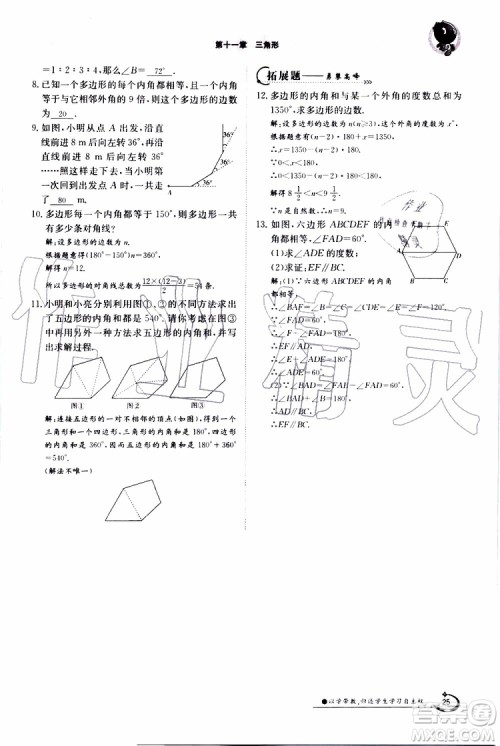 第十一章 三角形
=1:2:3:4,那么∠B= 72° .
8. 已知一个多边形的内角都相等,且一个内角
等于与它相邻外角的 9 倍,那么多边形的边数
为 20 .
9. 如图,小明从点O出发,沿直
线前进 8 m 后向左转 36°,再沿
直线前进 8 m 后向左转 36°……
照这样走下去,当他第
一次回到出发点时,共走
了 80 m.
36°
36°
36°
10. 多边形每一内角都等于 150°,多边形一共
有多少条对角线?
解:设这个多边形的边数为 n.
根据题意有(180°-150°)n=360°
解得 n=12.
所以多边形的对角线总数为12×(12-3)/2=54 条.
11. 小明和小亮分别利用图①、②的不同方法求出
了五边形的内角和都是 540°.请你在图③
中再用另外一种方法求五边形的内角和,并写
出求解过程.
图① 图② 图③
解:连接五边形的一对不相邻的顶点(如图),得到一个
三角形和一个四边形,三角形的内角和是 180°,四边形
的内角和是 360°,因而五边形的内角和是 180°+360°
=540°.
(解法不唯一)
拓展题——勇攀高峰
12. 多边形的内角和与某一个外角的度数总和为
1350°,求多边形的边数.
解:设多边形的边数为 n(n≥3),这个外角的度数为 x.
根据题意有(n-2)·180+x=1350
∴x=1350-(n-2)·180
∵0<x<180
∴0<1350-(n-2)·180<180
解得 8 1/2<n<9 1/2.
∵n 为正整数,∴n=9.
13. 如图,六边形 ABCDEF 的内
角都相等,∠FAD=60°.
(1)求∠ADE的度数;
(2)求证:EF∥BC.
F E
A D
B C
解:(1)∵六边形 ABCDEF 的内角都相等
∴∠BAF=∠F=∠E=120°
∵∠FAD=60°
∴∠F+∠FAD=180°
∴EF∥AD
∴∠E+∠ADE=180°
∴∠ADE=60°.
(2)∵∠BAD=∠FAB-∠FAD=60°
∴∠BAD+∠B=180°
∴AD∥BC
∴EF∥BC.
作业精灵
作业
检查
精灵
以学带教,引选学生学习自主权
25